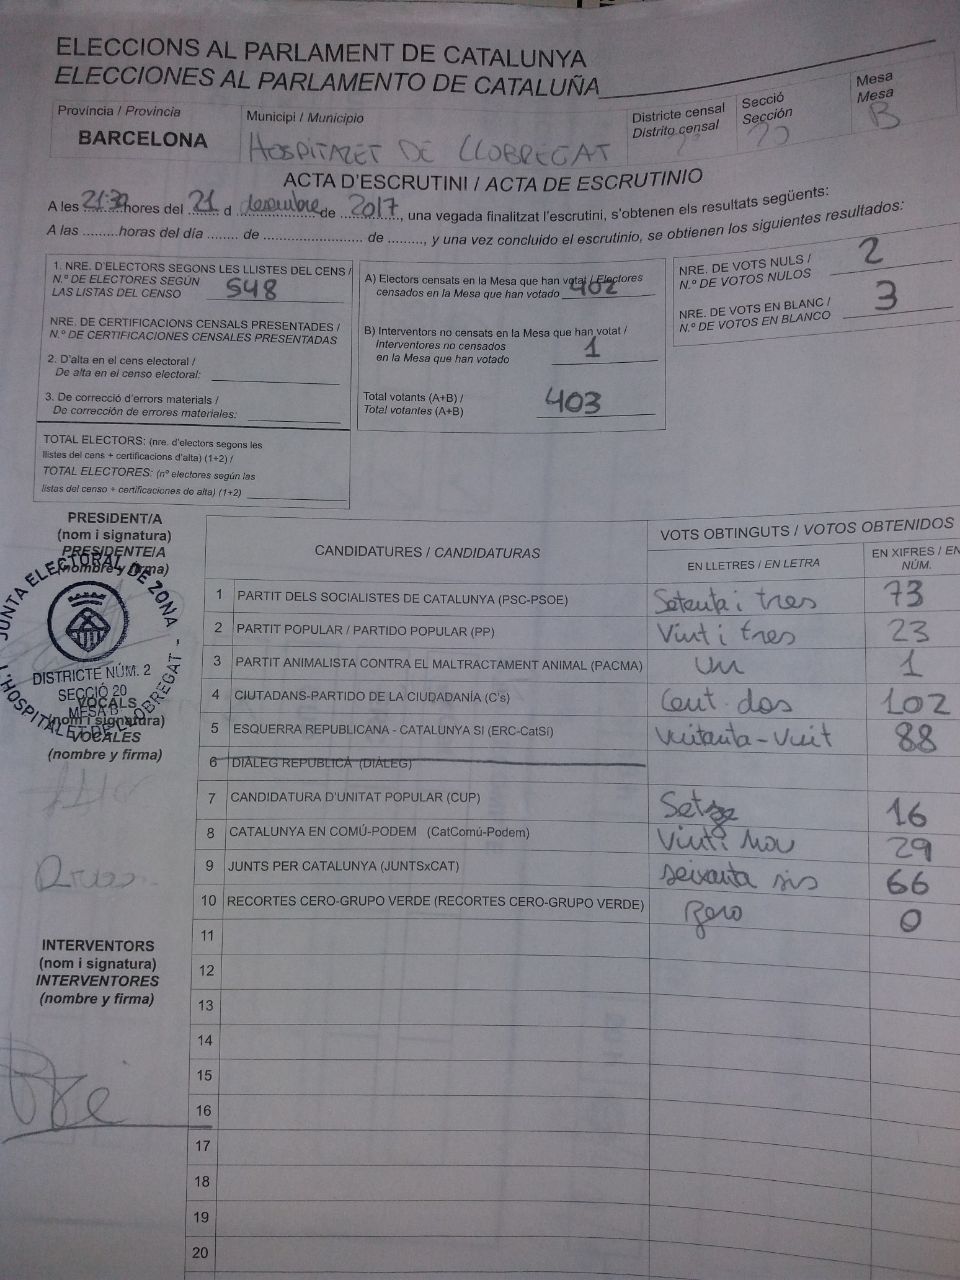 ELECCIONS AL PARLAMENT DE CATALUNYA
ELECCIONES AL PARLAMENTO DE CATALUÑA
Província / Provincia
BARCELONA
Municipi / Municipio
HOSPITALET DE LLOBREGAT
Districte censal
Distrito censal
2
Secció
Sección
20
Mesa
Mesa
B
ACTA D'ESCRUTINI / ACTA DE ESCRUTINIO
A les 21:30 hores del 21 d desembre de 2017, una vegada finalitzat l'escrutini, s'obtenen els resultats següents:
A las .........horas del día ........ de ........................ de ........., y una vez concluido el escrutinio, se obtienen los siguientes resultados:
1. NRE. D'ELECTORS SEGONS LES LLISTES DEL CENS /
N.º DE ELECTORES SEGÚN
LAS LISTAS DEL CENSO 548
NRE. DE CERTIFICACIONS CENSALS PRESENTADES /
N.º DE CERTIFICACIONES CENSALES PRESENTADAS
2. D'alta en el cens electoral /
De alta en el censo electoral:
3. De correcció d'errors materials /
De corrección de errores materiales:
TOTAL ELECTORS: (nre. d'electors segons les
llistes del cens + certificacions d'alta) (1+2) /
TOTAL ELECTORES: (nº electores según las
listas del censo + certificaciones de alta) (1+2)
A) Electors censats en la Mesa que han votat / Electores
censados en la Mesa que han votado 402
B) Interventors no censats en la Mesa que han votat /
Interventores no censados
en la Mesa que han votado 1
Total votants (A+B) /
Total votantes (A+B) 403
NRE. DE VOTS NULS /
N.º DE VOTOS NULOS 2
NRE. DE VOTS EN BLANC /
N.º DE VOTOS EN BLANCO 3
PRESIDENT/A
(nom i signatura)
PRESIDENTE/A
(nombre y firma)
JUNTA ELECTORAL DE ZONA - L'HOSPITALET DE LLOBREGAT -
DISTRICTE NÚM. 2
SECCIÓ 20
MESA B
VOCALS
(nom i signatura)
VOCALES
(nombre y firma)
INTERVENTORS
(nom i signatura)
INTERVENTORES
(nombre y firma)
CANDIDATURES / CANDIDATURAS
VOTS OBTINGUTS / VOTOS OBTENIDOS
EN LLETRES / EN LETRA
EN XIFRES / EN
NÚM.
1 PARTIT DELS SOCIALISTES DE CATALUNYA (PSC-PSOE) Setanta i tres 73
2 PARTIT POPULAR / PARTIDO POPULAR (PP) Vint i tres 23
3 PARTIT ANIMALISTA CONTRA EL MALTRACTAMENT ANIMAL (PACMA) Un 1
4 CIUTADANS-PARTIDO DE LA CIUDADANÍA (C's) Cent dos 102
5 ESQUERRA REPUBLICANA - CATALUNYA SI (ERC-CatSí) Vuitanta-Vuit 88
6 DIÀLEG REPUBLICÀ (DIÀLEG)
7 CANDIDATURA D'UNITAT POPULAR (CUP) Setze 16
8 CATALUNYA EN COMÚ-PODEM (CatComú-Podem) Vint i nou 29
9 JUNTS PER CATALUNYA (JUNTSxCAT) seixanta sis 66
10 RECORTES CERO-GRUPO VERDE (RECORTES CERO-GRUPO VERDE) Zero 0
11
12
13
14
15
16
17
18
19
20